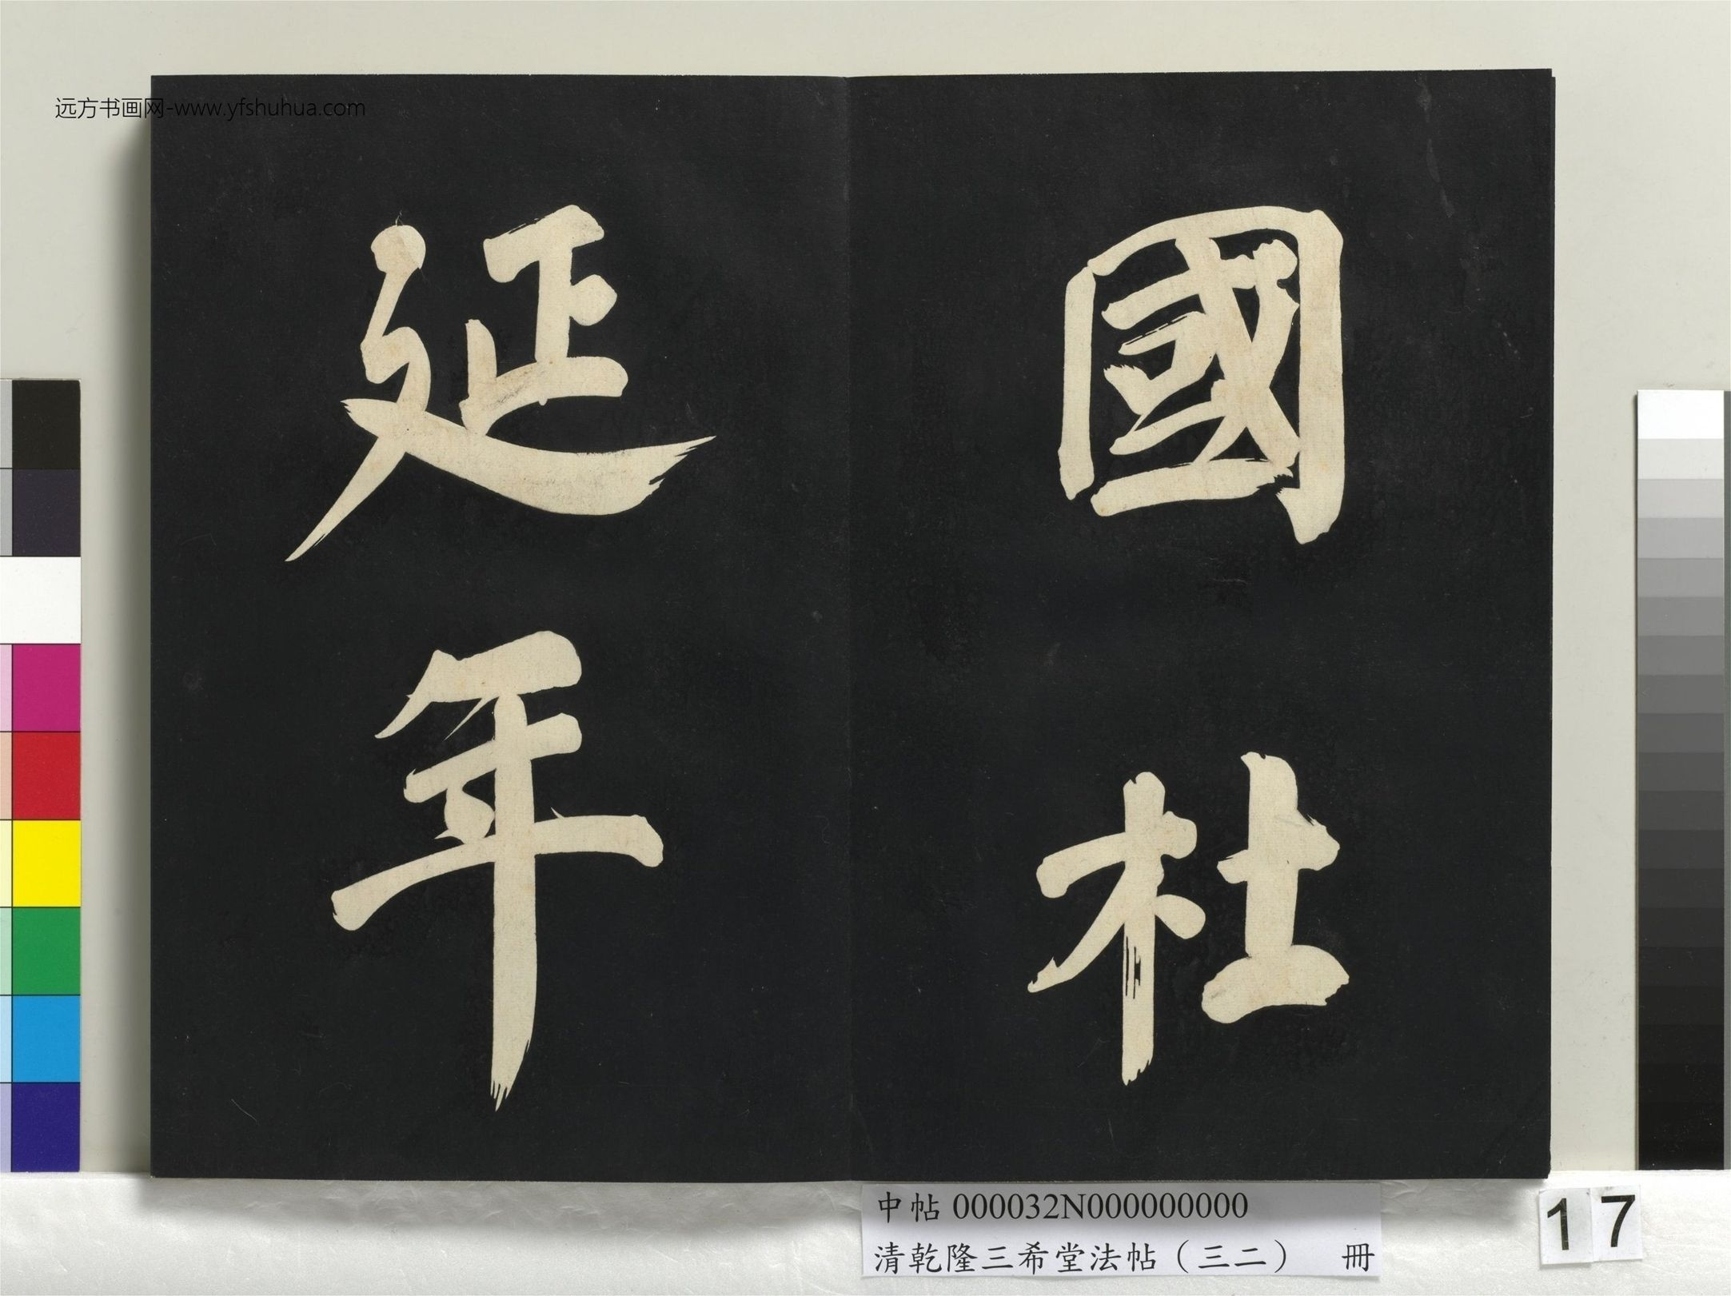 远方书画网-www.yfshuhua.com
國杜
延年
中帖 000032N000000000
清乾隆三希堂法帖（三二） 冊
17